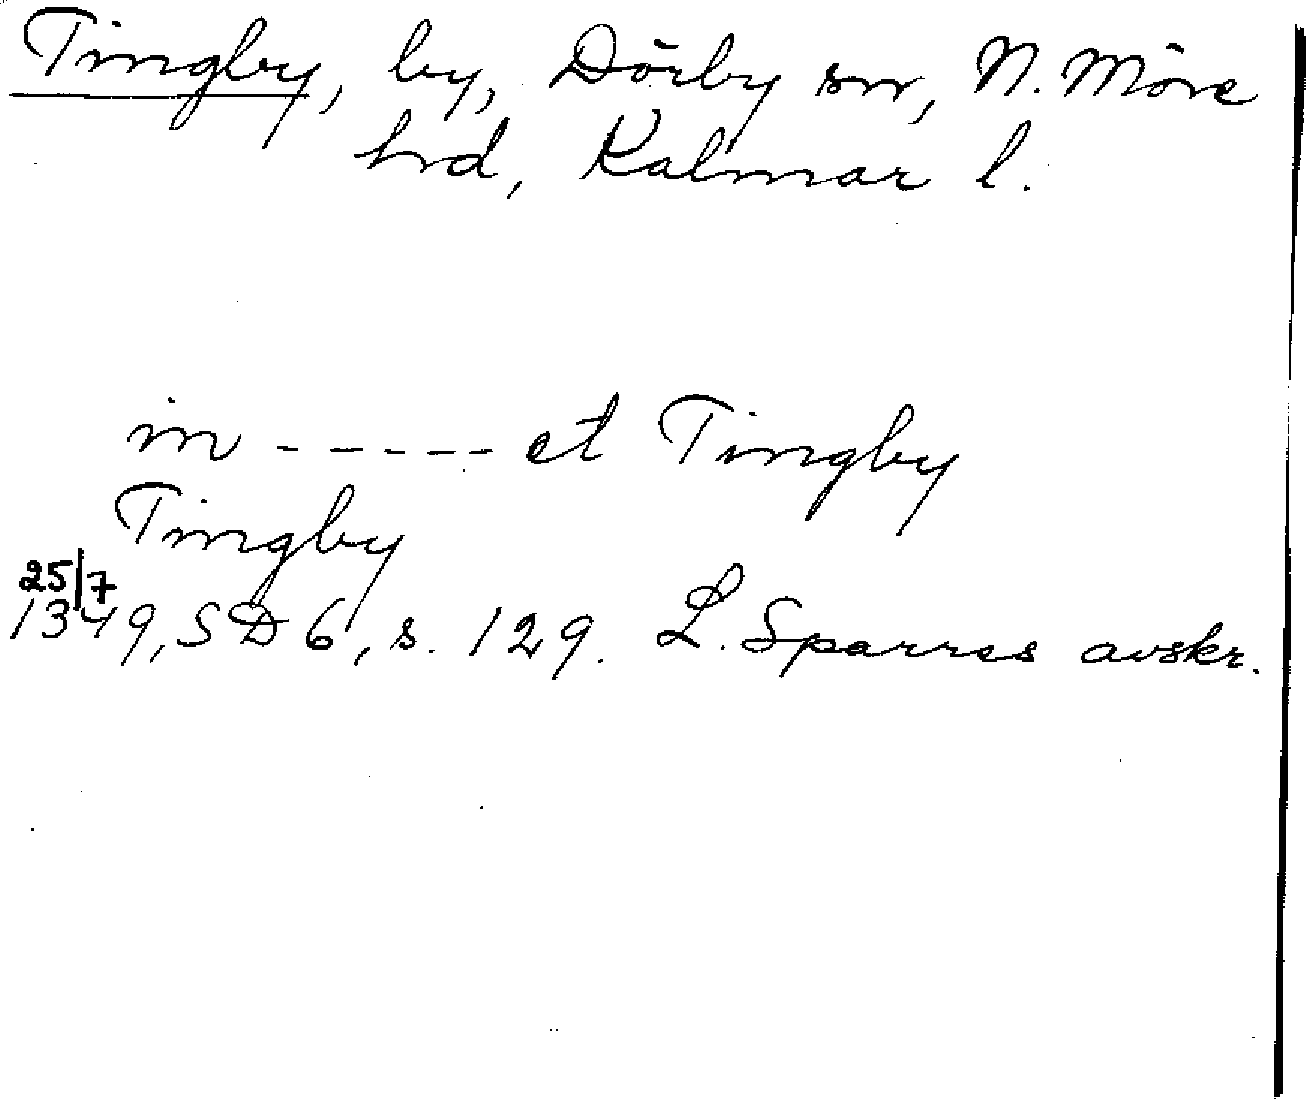 Tingby, by, Dörby sn, N. Möre
hrd, Kalmar l.
in ----- et Tingby
Tingby
25/7
1349, SD 6, s. 129. L. Sparres avskr.